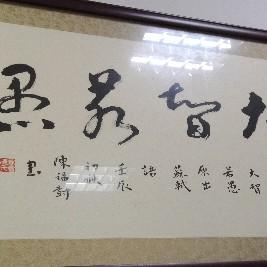 大智若愚
大智
若愚
原出
蘇軾
語
壬辰
初秋
陳福
書